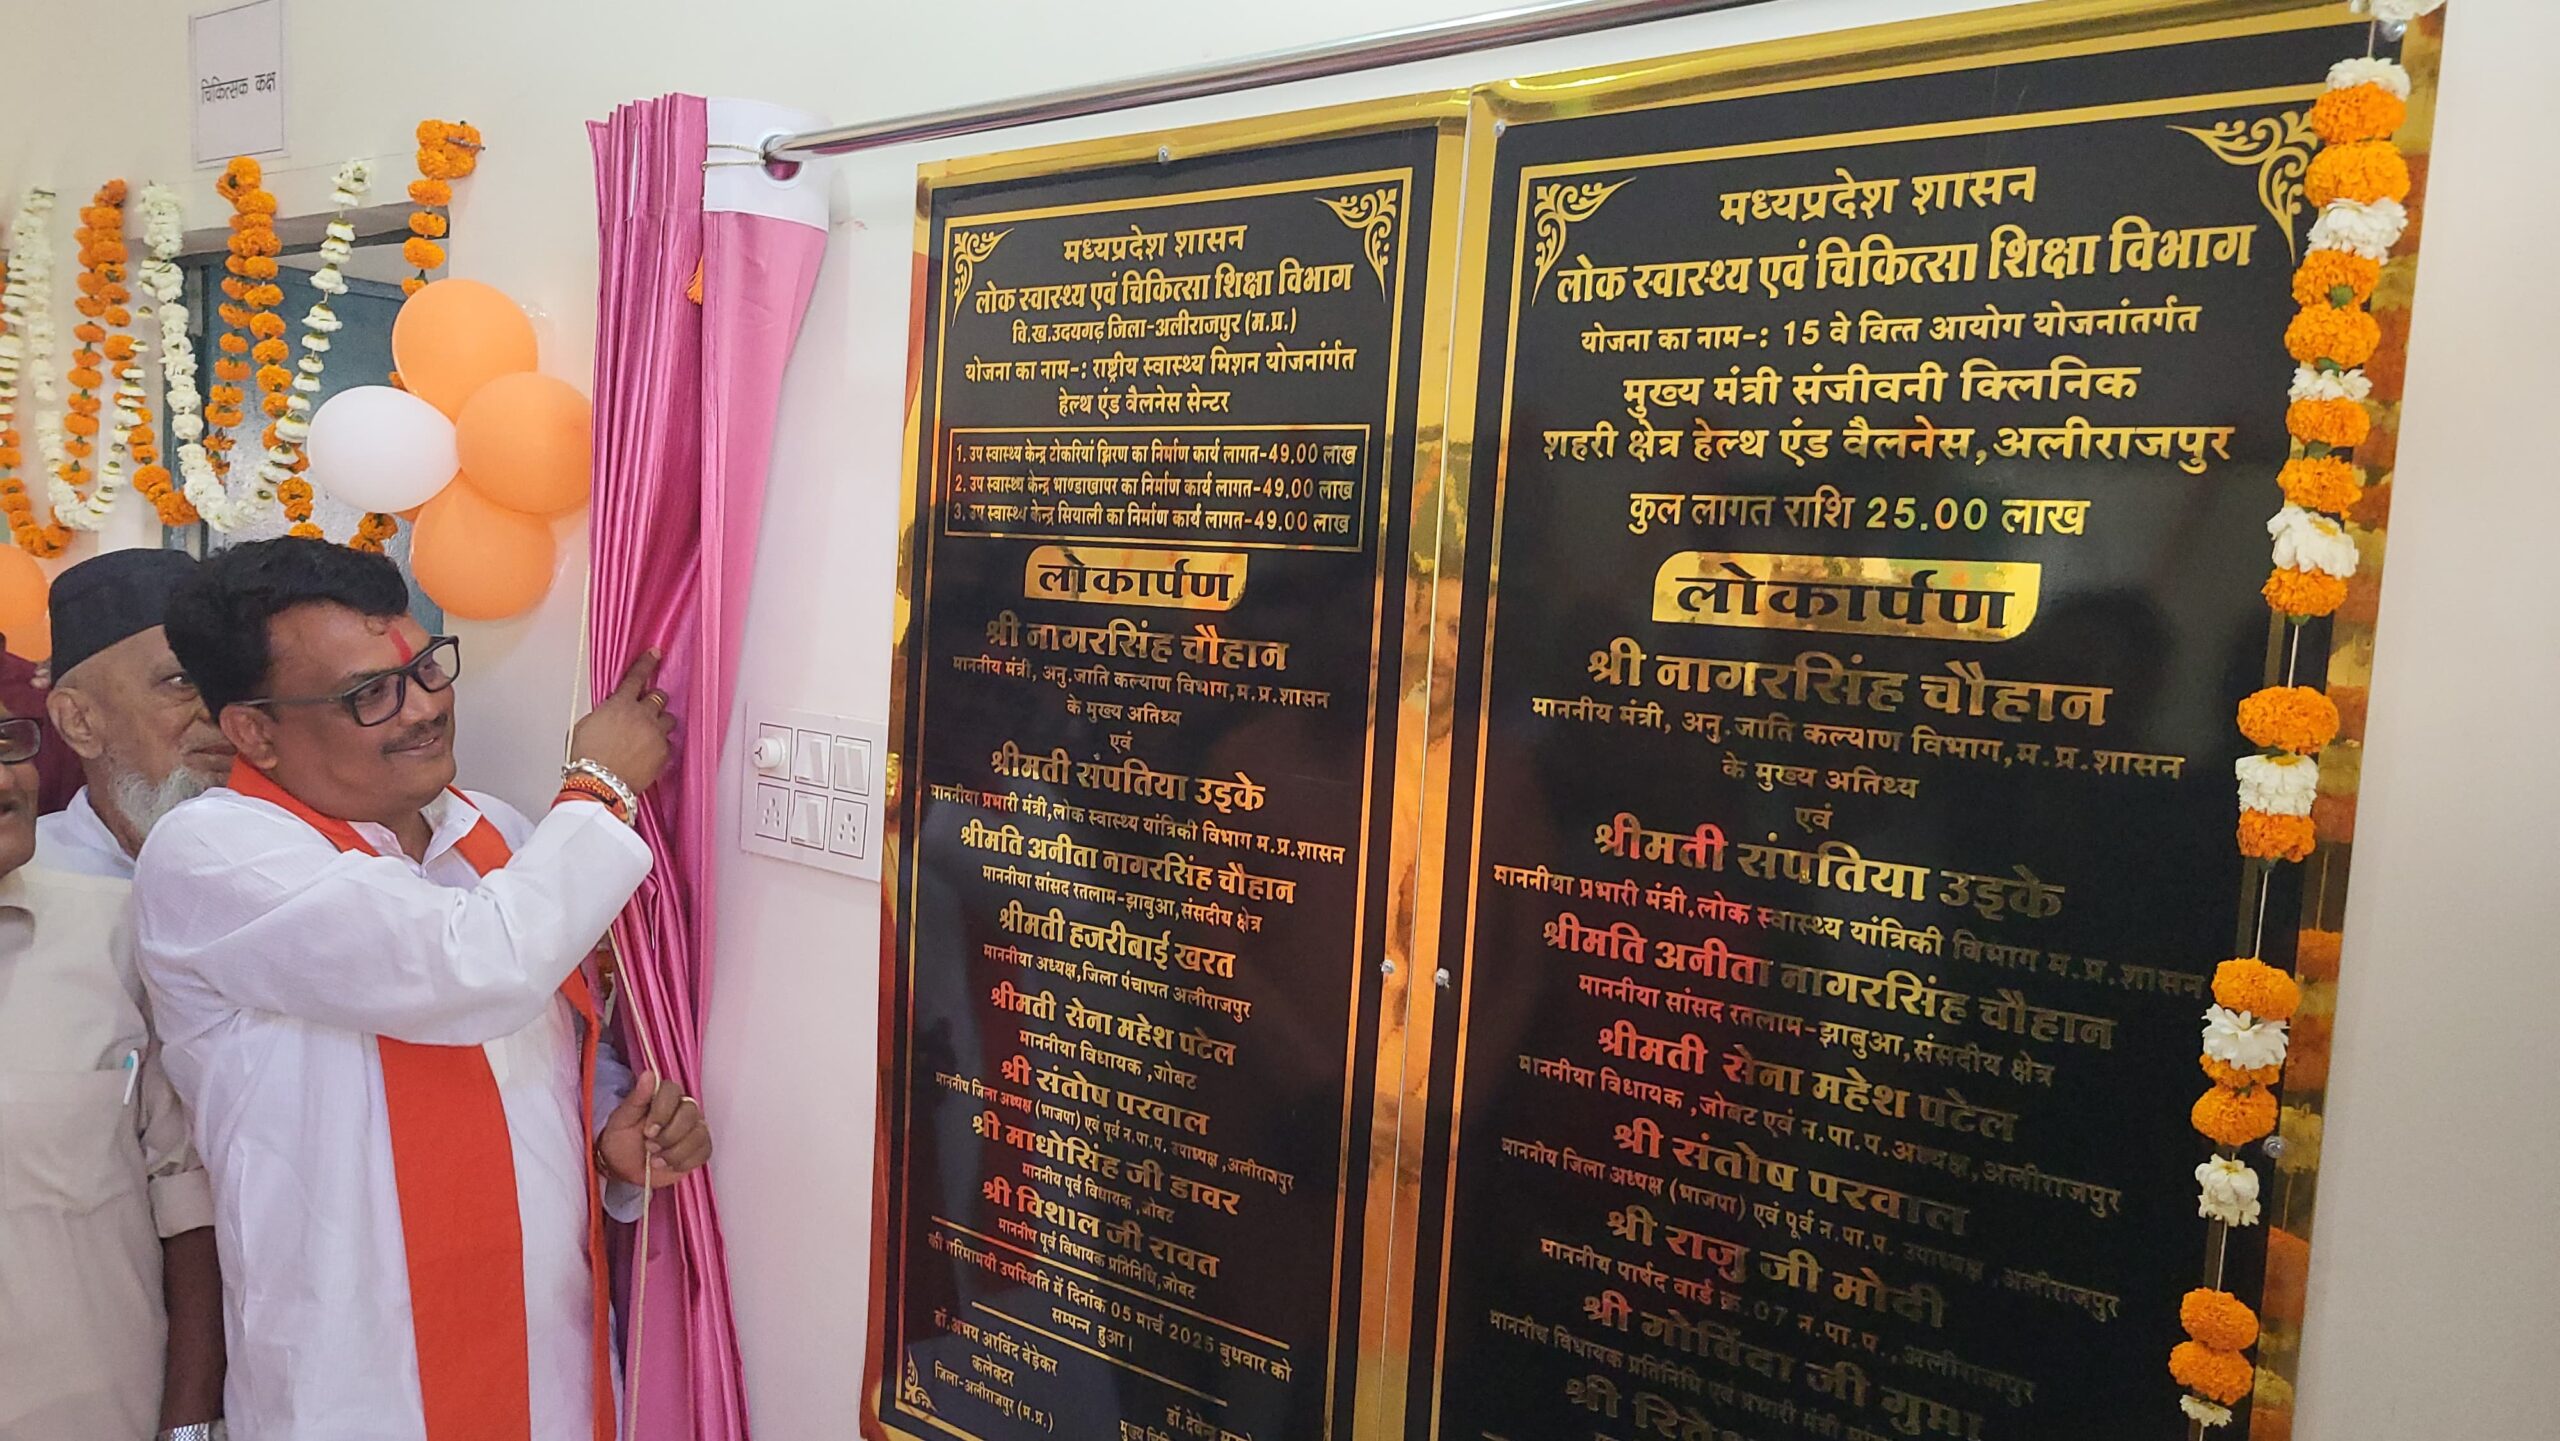 चिकित्सक कक्ष
मध्यप्रदेश शासन
लोक स्वास्थ्य एवं चिकित्सा शिक्षा विभाग
वि.ख.उदयगढ़ जिला-अलीराजपुर (म.प्र.)
योजना का नाम-: राष्ट्रीय स्वास्थ्य मिशन योजनांर्गत
हेल्थ एंड वैलनेस सेन्टर
1. उप स्वास्थ्य केन्द्र टोकरियां झिरण का निर्माण कार्य लागत-49.00 लाख
2. उप स्वास्थ्य केन्द्र भाण्डाखापर का निर्माण कार्य लागत-49.00 लाख
3. उप स्वास्थ्य केन्द्र सियाली का निर्माण कार्य लागत-49.00 लाख
लोकार्पण
श्री नागरसिंह चौहान
माननीय मंत्री, अनु.जाति कल्याण विभाग,म.प्र.शासन
के मुख्य अतिथ्य
एवं
श्रीमती संपतिया उइके
माननीया प्रभारी मंत्री,लोक स्वास्थ्य यांत्रिकी विभाग म.प्र.शासन
श्रीमति अनीता नागरसिंह चौहान
माननीया सांसद रतलाम-झाबुआ,संसदीय क्षेत्र
श्रीमती हजरीबाई खरत
माननीया अध्यक्ष,जिला पंचायत अलीराजपुर
श्रीमती सेना महेश पटेल
माननीया विधायक ,जोबट
श्री संतोष परवाल
माननीय जिला अध्यक्ष (भाजपा) एवं पूर्व न.पा.प. उपाध्यक्ष ,अलीराजपुर
श्री माधोसिंह जी डावर
माननीय पूर्व विधायक ,जोबट
श्री विशाल जी रावत
माननीय पूर्व विधायक प्रतिनिधि,जोबट
की गरिमामयी उपस्थिति में दिनांक 05 मार्च 2025 बुधवार को
सम्पन्न हुआ।
डॉ.अभय अरविंद बेड़ेकर
कलेक्टर
जिला-अलीराजपुर (म.प्र.)
मध्यप्रदेश शासन
लोक स्वास्थ्य एवं चिकित्सा शिक्षा विभाग
योजना का नाम-: 15 वे वित्त आयोग योजनांतर्गत
मुख्य मंत्री संजीवनी क्लिनिक
शहरी क्षेत्र हेल्थ एंड वैलनेस,अलीराजपुर
कुल लागत राशि 25.00 लाख
लोकार्पण
श्री नागरसिंह चौहान
माननीय मंत्री, अनु.जाति कल्याण विभाग,म.प्र.शासन
के मुख्य अतिथ्य
एवं
श्रीमती संपतिया उइके
माननीया प्रभारी मंत्री,लोक स्वास्थ्य यांत्रिकी विभाग म.प्र.शासन
श्रीमति अनीता नागरसिंह चौहान
माननीया सांसद रतलाम-झाबुआ,संसदीय क्षेत्र
श्रीमती सेना महेश पटेल
माननीया विधायक ,जोबट एवं न.पा.प.अध्यक्ष,अलीराजपुर
श्री संतोष परवाल
माननीय जिला अध्यक्ष (भाजपा) एवं पूर्व न.पा.प. उपाध्यक्ष ,अलीराजपुर
श्री राजु जी मोदी
माननीय पार्षद वार्ड क्र.07 न.पा.प.,अलीराजपुर
श्री गोविंदा जी गुप्ता
माननीय विधायक प्रतिनिधि एवं प्रभारी मंत्री